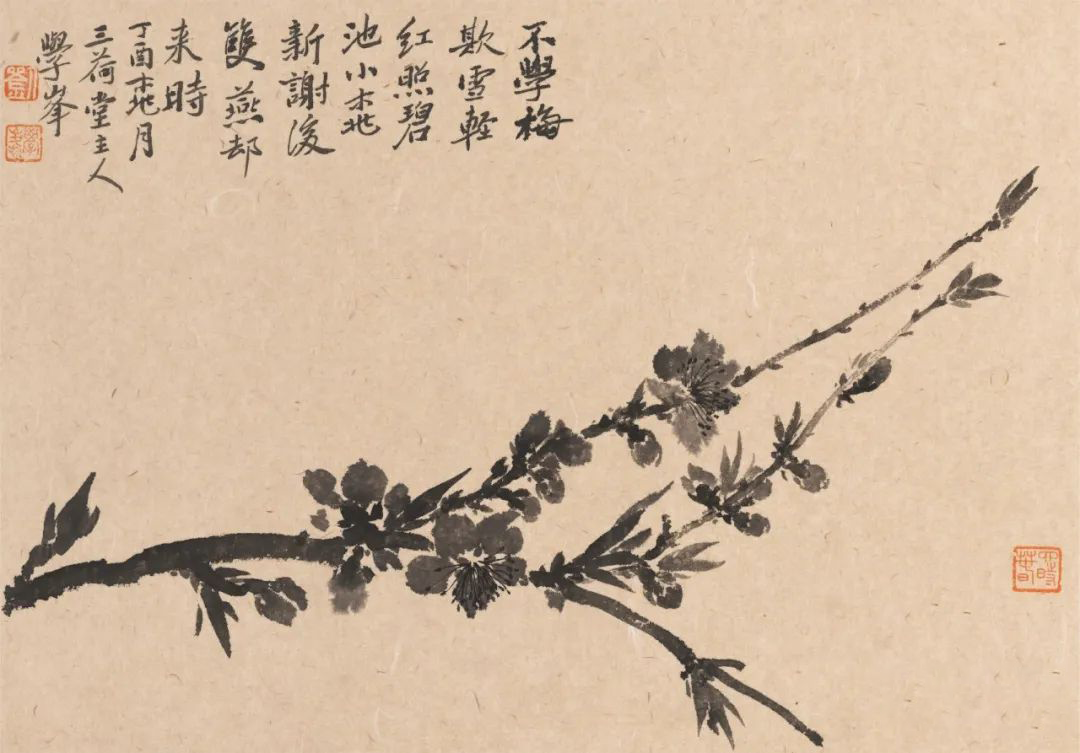 不學梅
欺雪輕
红照碧
池小桃
新謝後
雙燕却
来時
丁酉桃月
三荷堂主人
學峯